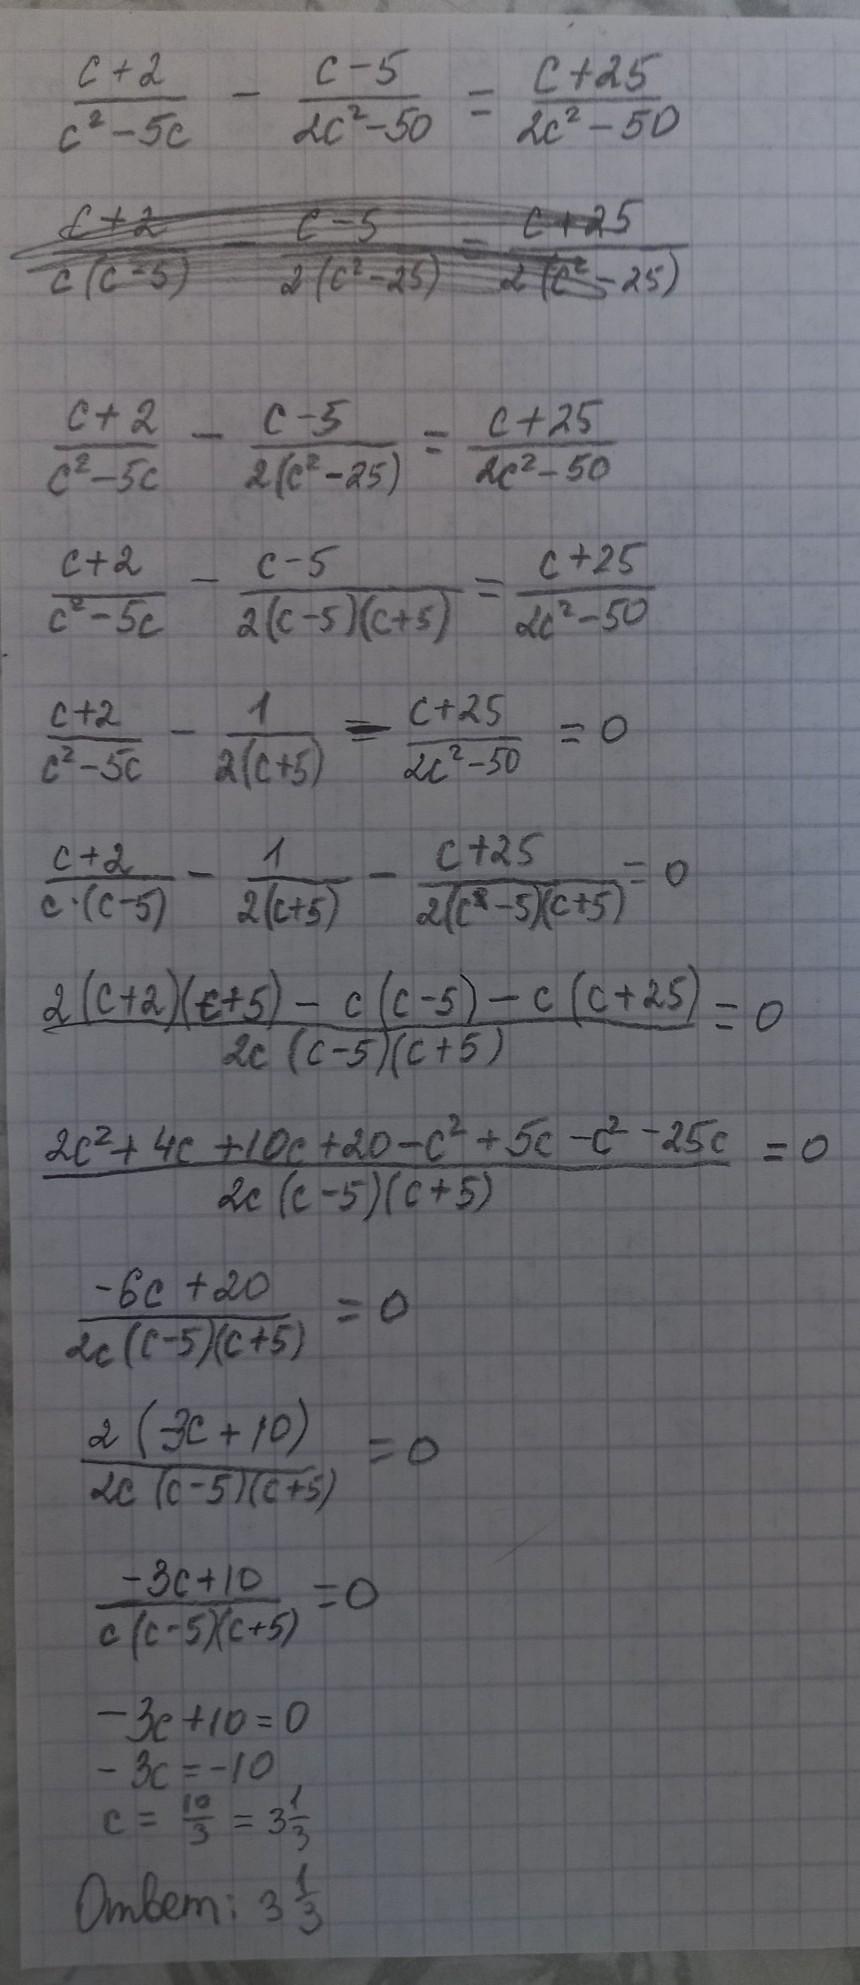 (c+2)/(c²-5c) - (c-5)/(2c²-50) = (c+25)/(2c²-50)
(c+2)/(c(c-5)) - (c-5)/(2(c²-25)) = (c+25)/(2(c²-25))
(c+2)/(c²-5c) - (c-5)/(2(c²-25)) = (c+25)/(2c²-50)
(c+2)/(c²-5c) - (c-5)/(2(c-5)(c+5)) = (c+25)/(2c²-50)
(c+2)/(c²-5c) - 1/(2(c+5)) - (c+25)/(2c²-50) = 0
(c+2)/(c·(c-5)) - 1/(2(c+5)) - (c+25)/(2(c-5)(c+5)) = 0
(2(c+2)(c+5) - c(c-5) - c(c+25))/(2c(c-5)(c+5)) = 0
(2c²+4c+10c+20-c²+5c-c²-25c)/(2c(c-5)(c+5)) = 0
(-6c+20)/(2c(c-5)(c+5)) = 0
(2(-3c+10))/(2c(c-5)(c+5)) = 0
(-3c+10)/(c(c-5)(c+5)) = 0
-3c+10=0
-3c=-10
c = 10/3 = 3 1/3
Ответ: 3 1/3